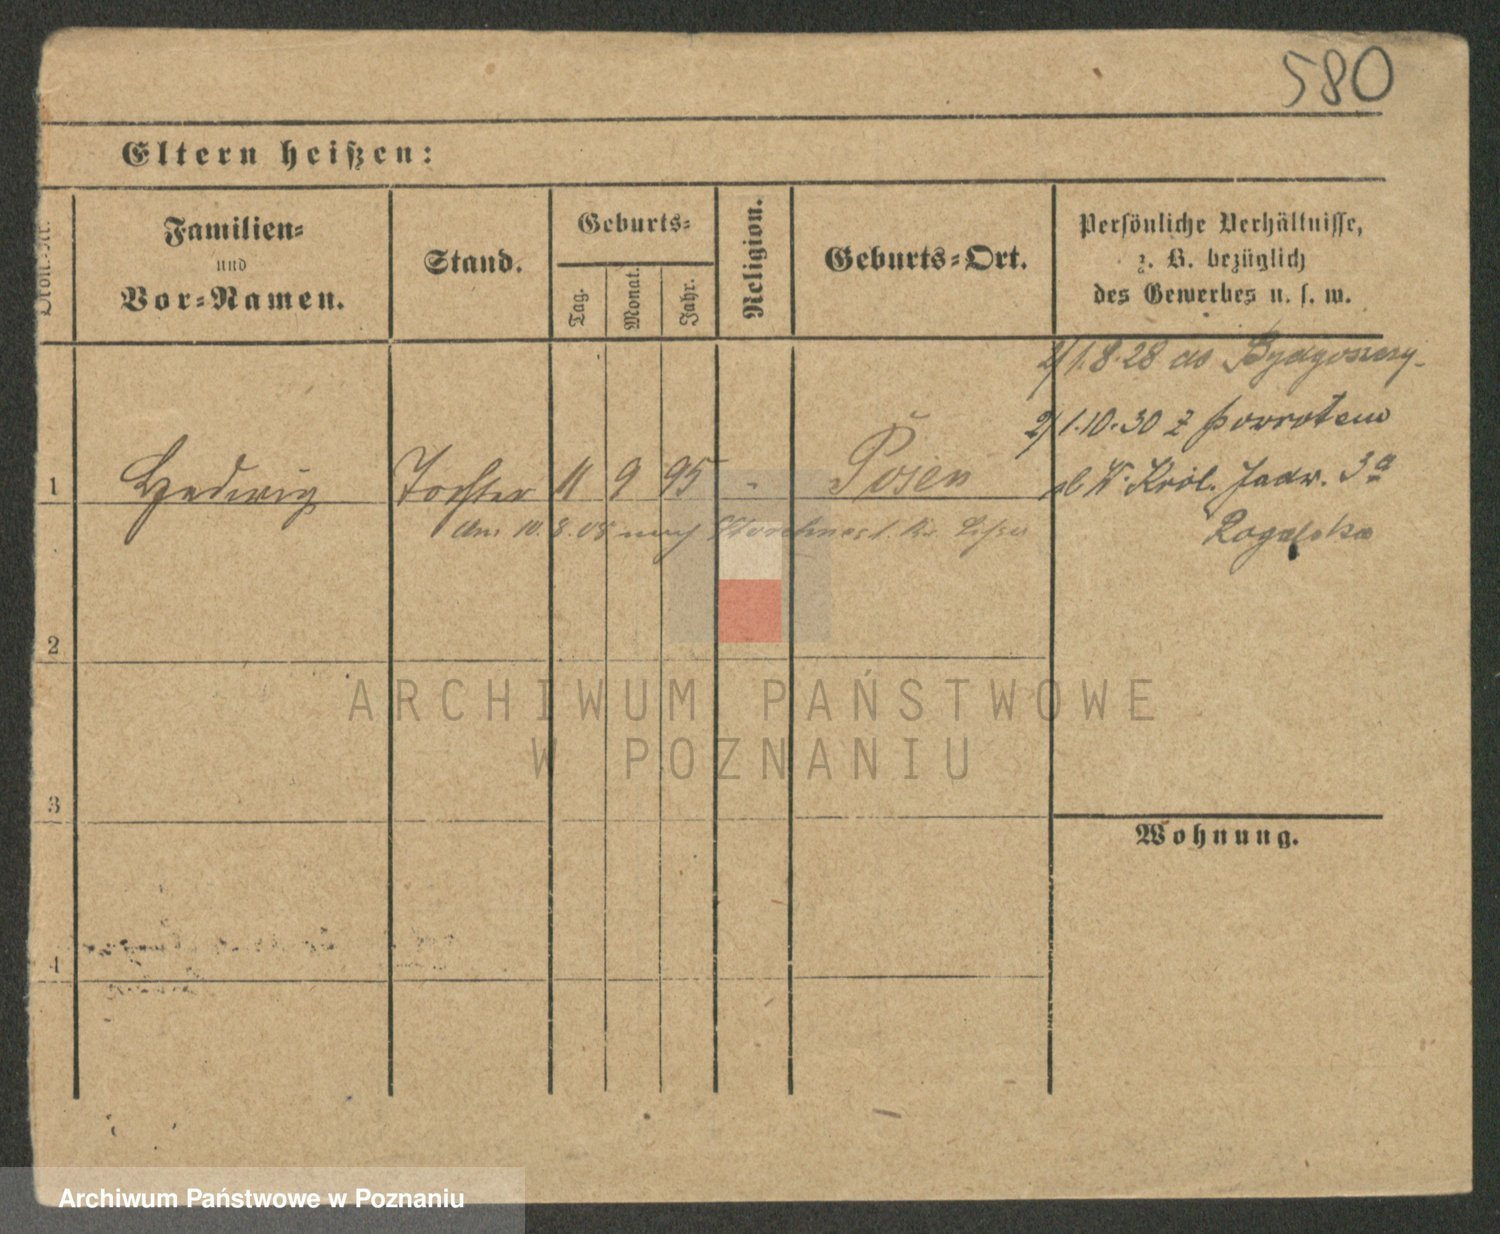 580
Eltern heißen:
Ordn.-Nr.
Familien-
und
Vor-Namen.
Stand.
Geburts-
Tag.
Monat.
Jahr.
Religion.
Geburts-Ort.
Persönliche Verhältnisse,
z. B. bezüglich
des Gewerbes u. s. w.
2/1.8.28 do Bydgoszczy
2/1.10.30 z powrotem
1 Hedwig Tochter 11 9 95 - Posen
ul W. Król. Jadw. 3a
Am 10.8.08 nach Storchnest Kr. Lissa
Rogalska
2
3
4
Wohnung.
ARCHIWUM PAŃSTWOWE
W POZNANIU
Archiwum Państwowe w Poznaniu